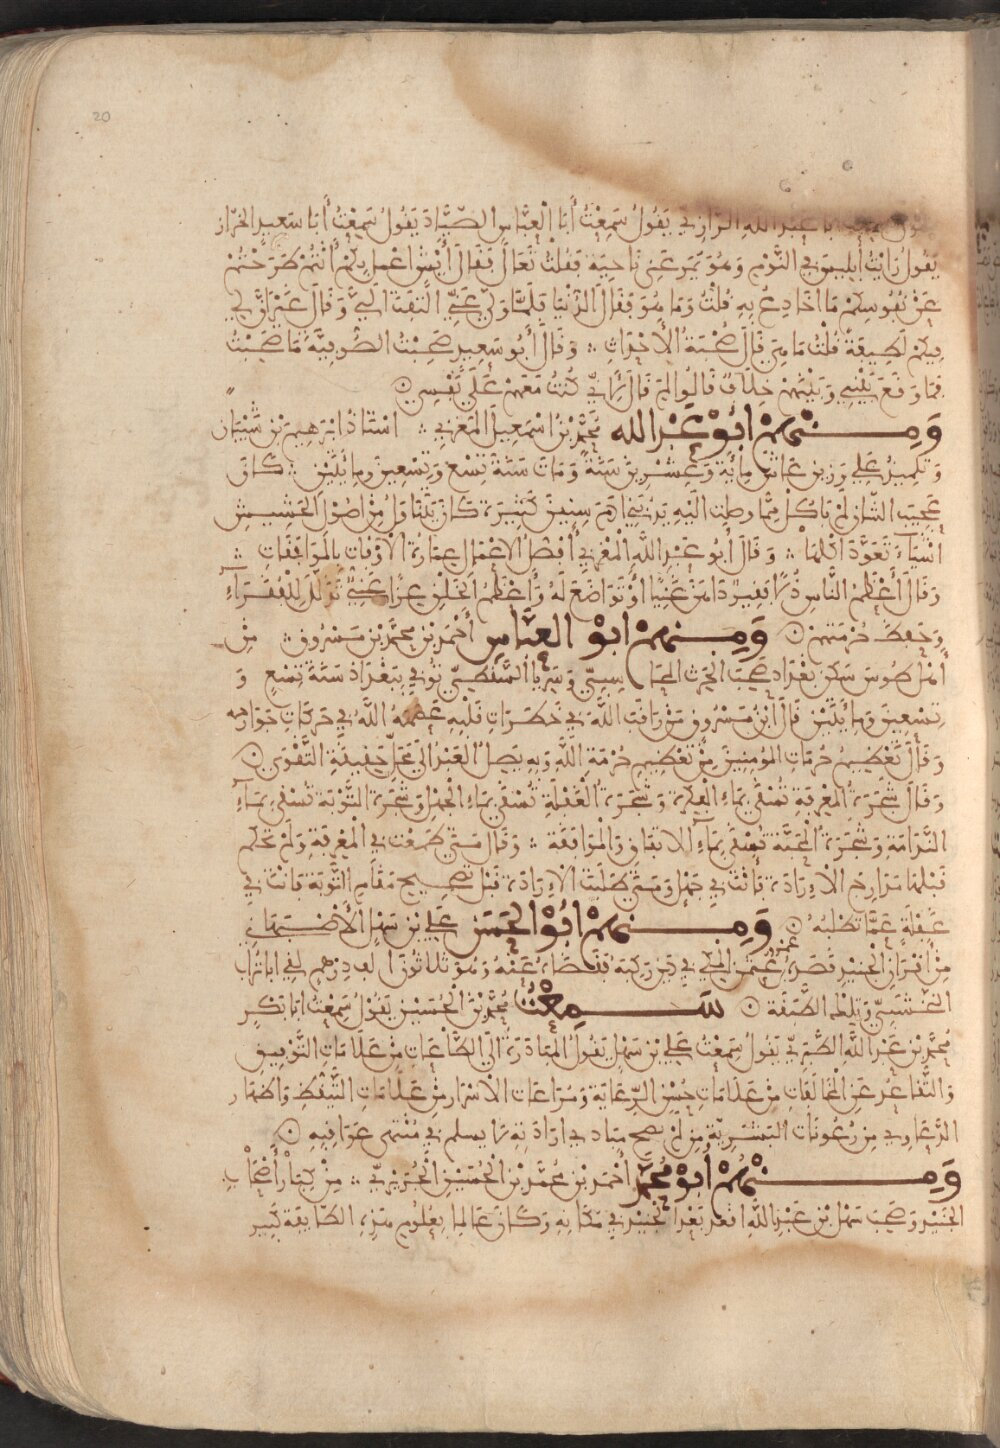 20
يقول سمعت ابا عبد الله الرازي يقول سمعت أبا العباس الصياد يقول سمعت أبا سعيد الخراز
يقول رايت إبليس في النوم وهو يمر عني ناحية فقلت تعال فقال أيش اعمل بكم أنتم طرحتم
عن نفوسكم ما اخادع به قلت وما هو فقال الدنيا فلما ولى عني التفت الي وقال غير ان لي
فيكم لطيفة قلت ما هي قال صحبة الأحداث ؞ وقال أبو سعيد صحبت الصوفية ما صحبت
فما وقع بيني وبينهم خلاف قالوا لم قال لأني كنت معهم على نفسي
ومنهم ابو عبد الله محمد بن اسمعيل المغربي ؞ استاذ ابرهيم بن شيبان
وتلميذ علي رزين عاش ماية وعشرين سنة ومات سنة تسع وتسعين ومايتين ؞ كان
عجيب الشان لم ياكل مما وصلت اليه يد بني ادم سنين كثيرة كان يتناول من اصول الحشيش
اشياء تعود اكلها ؞ وقال أبو عبد الله المغربي أفضل الاعمال عمارة الاوقات بالموافقات ؞
وقال أعظم الناس ذلا فقير داهن غنيا او تواضع له وأعظم الخلق عزا غني تذلل للفقراء
وحفظ حرمتهم ومنهم ابو العباس أحمد بن محمد بن مسروق ؞ من
أهل طوس سكن بغداد صحب الحرث المحاسبي وسريا السقطي توفي ببغداد سنة تسع و
تسعين ومايتين قال ابن مسروق من راقب الله في خطرات قلبه عصمه الله في حركات جوارحه
وقال تعظيم حرمات المومنين من تعظيم حرمة الله وبه يصل العبد الى محل حقيقة التقوى
وقال شجرة المعرفة تسقى بماء الفكرة وشجرة الغفلة تسقى بماء الجهل وشجرة التوبة تسقى بماء
الندامة وشجرة المحبة تسقى بماء الاتفاق والموافقة ؞ وقال متى طمعت في المعرفة ولم تحكم
قبلها مدارج الارادة فانت في جهل ومتى طلبت الارادة قبل تصحيح مقام التوبة فانت في
غفلة عما تطلبه ومنهم ابو الحسن علي بن سهل الأصبهاني
من اقران الجنيد قصده عمرو بن عثمن المكي في دين ركبه فقضاه عنه وهو ثلاثون الف درهم لقي ابا تراب
النخشبي وتلك الطبقة سمعت محمد بن الحسين يقول سمعت ابا بكر
محمد بن عبد الله الطبري يقول سمعت علي بن سهل يقول المبادرة الى الطاعات من علامات التوفيق
والتقاعد عن المخالفات من علامات حسن الرعاية ومراعات الاسرار من علامات التيقظ واظهار
الدعاوي من رعونات البشرية ومن لم يصح مبادي ارادته لا يسلم في منتهى عواقبه
ومنهم أبو محمد أحمد بن محمد بن الحسين الجريري ؞ من كبار أصحاب
الجنيد وصحب سهل بن عبد الله اقعد بعد الجنيد في مكانه وكان عالما بعلوم هذه الطايفة كبير